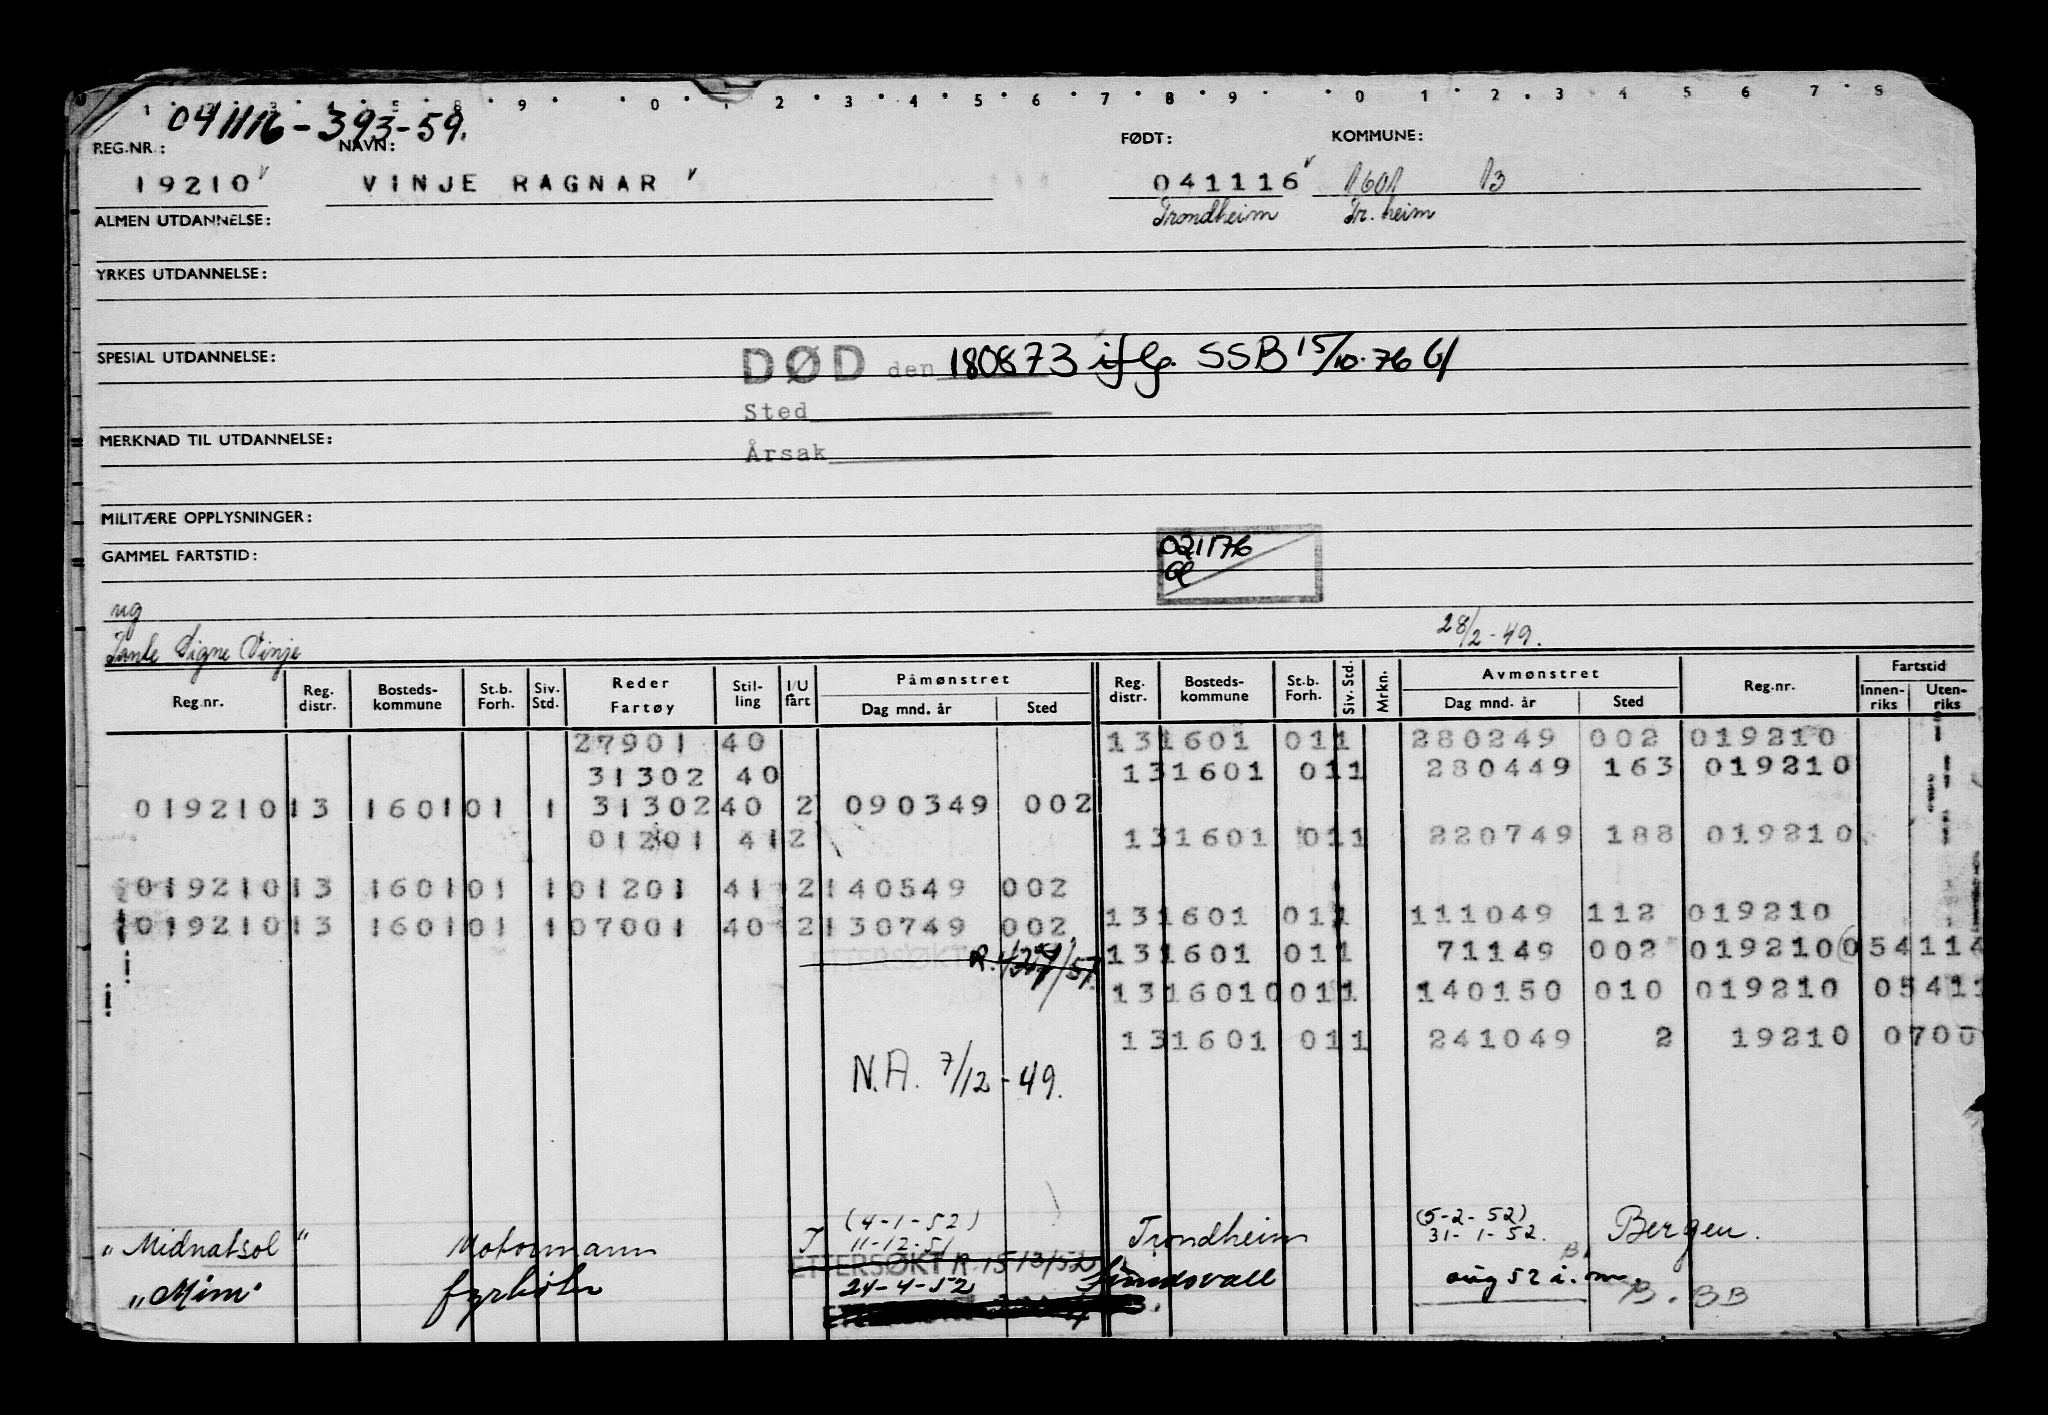 041116-393-59.
REG.NR.: NAVN: FØDT: KOMMUNE:
19210 VINJE RAGNAR 041116 1601 13
Trondheim Tr.heim
ALMEN UTDANNELSE:
YRKES UTDANNELSE:
SPESIAL UTDANNELSE:
DØD den 180873 iflg. SSB 15/10-76
Sted
MERKNAD TIL UTDANNELSE:
Årsak
MILITÆRE OPPLYSNINGER:
GAMMEL FARTSTID:
021176
ug
28/2-49.
Tante Signe Vinje
Reg.nr. Reg. distr. Bostedskommune St.b. Forh. Siv. Std. Reder Fartøy Stilling I/U fart Påmønstret Dag mnd. år Sted Reg. distr. Bostedskommune St.b. Forh. Siv. Std. Mrkn. Avmønstret Dag mnd. år Sted Reg.nr. Fartstid Innenriks Utenriks
27901 40 131601 011 280249 002 019210
31302 40 131601 011 280449 163 019210
019210 13 1601 01 1 31302 40 2 090349 002
01201 41 2 131601 011 220749 188 019210
019210 13 1601 01 1 01201 41 2 140549 002
019210 13 1601 01 1 07001 40 2 130749 002 131601 011 111049 112 019210
131601 011 71149 002 019210 054114
1316010011 140150 010 019210 05411
131601 011 241049 2 19210 0700
N.A. 7/12-49.
(4-1-52) (5-2-52)
"Midnatsol" Motormann T 11-12-51 Trondheim 31-1-52. Bergen.
ETTERSØKT R 1513/52
"Mim" fyrbøter 24-4-52 Sundsvall aug 52 i. m.
B. BB